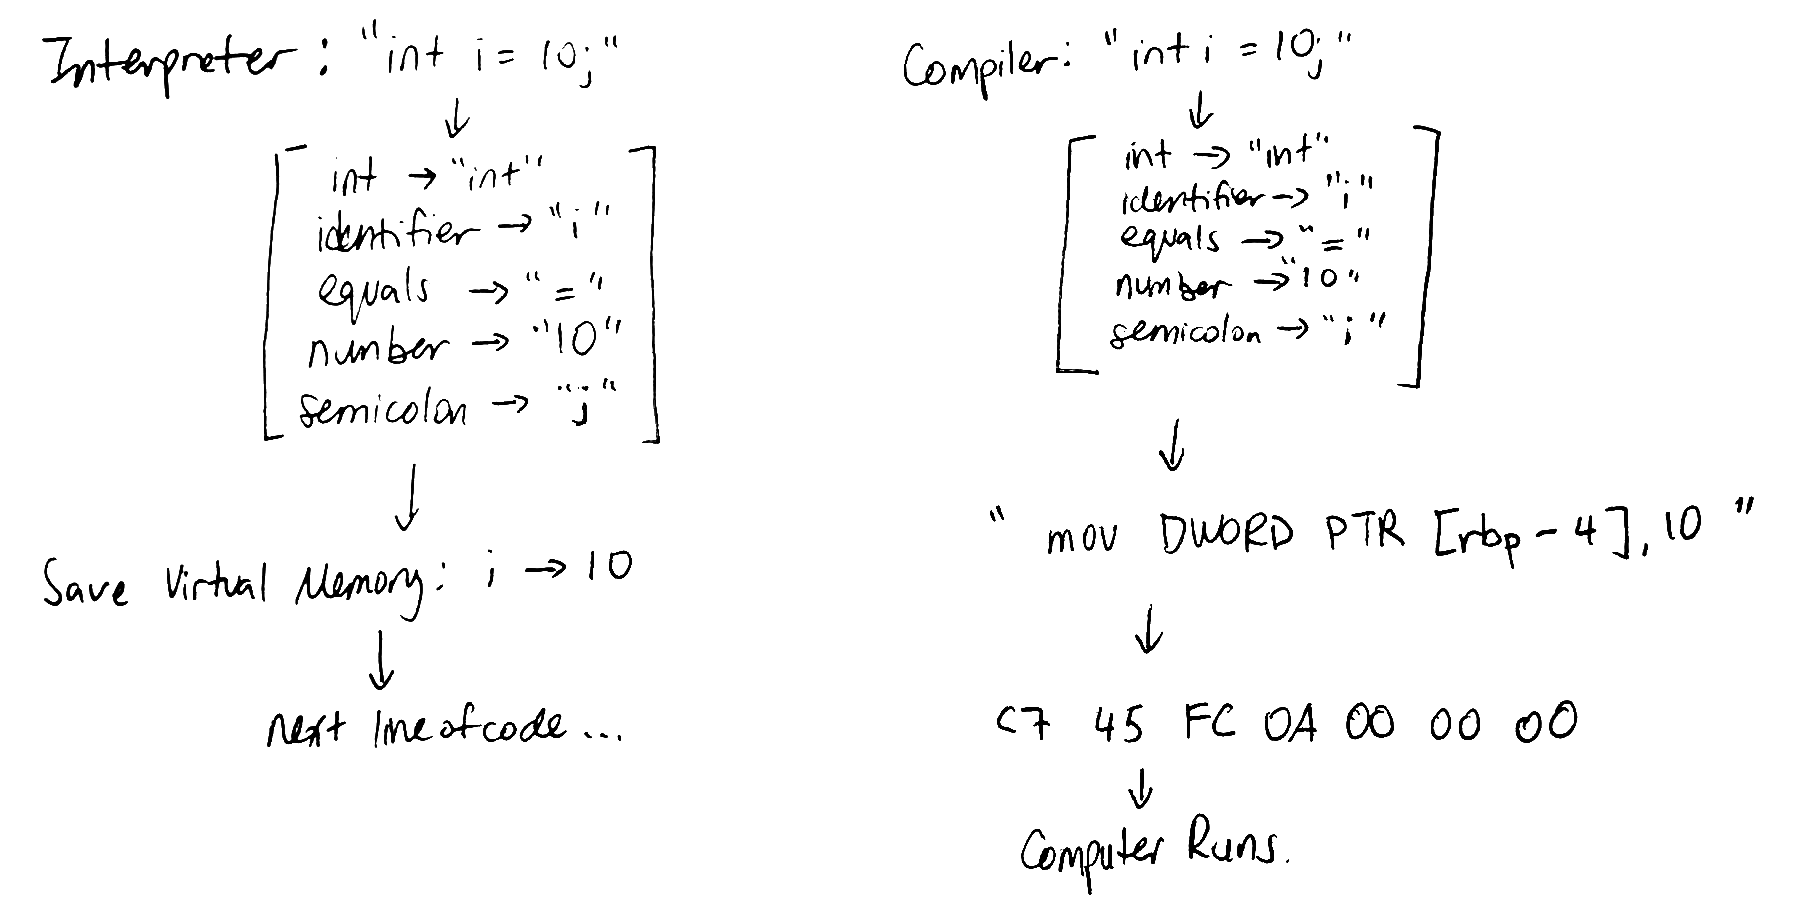 Interpreter: "int i = 10;"
↓
int → "int"
identifier → "i"
equals → "="
number → "10"
semicolon → ";"
↓
Save Virtual Memory: i → 10
↓
next line of code ...
Compiler: "int i = 10;"
↓
int → "int"
identifier → "i"
equals → "="
number → "10"
semicolon → ";"
↓
"mov DWORD PTR [rbp - 4], 10"
↓
C7 45 FC 0A 00 00 00
↓
Computer Runs.